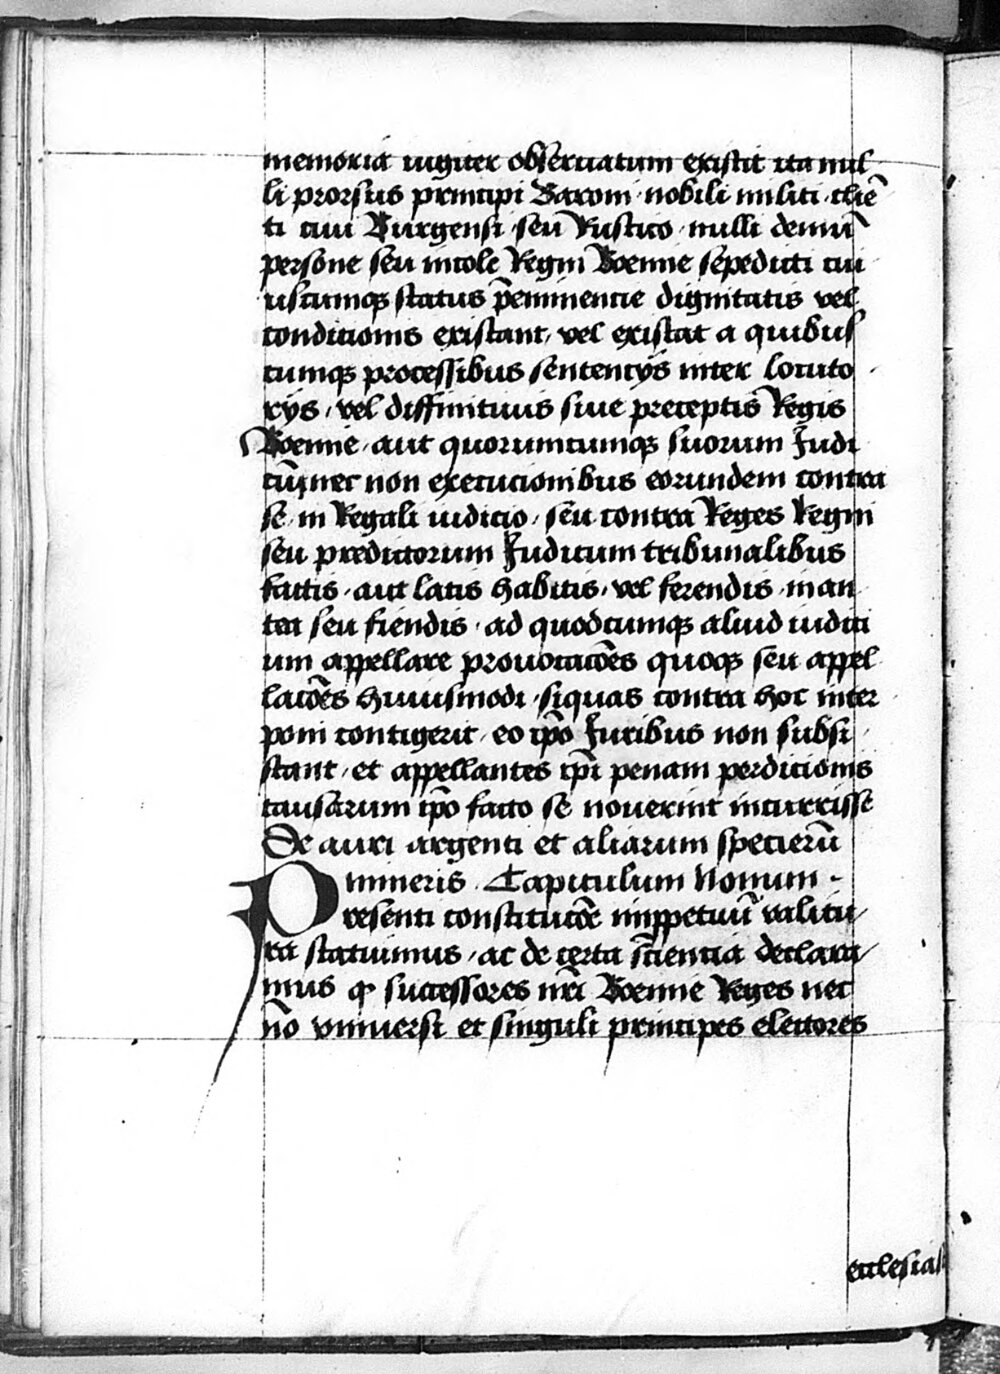 memoria iugiter obseruatum existit ita nul
li prorsus principi Baroni nobili militi cliē
ti ciui Burgensi seu Rustico nulli demū
persone seu incole Regni Boemie sepedicti cui
uscumqꝫ status p̄eminencie dignitatis vel
condicionis existant vel existat a quibus
cumqꝫ processibus sentencijs inter locuto
rijs vel diffinitiuis siue preceptis Regis
Boemie aut quorumcumqꝫ suorum Judi
cū nec non execucionibus eorundem contra
se in Regali iudicio seu contra Reges Regni
seu predictorum Judicum tribunalibus
factis aut latis habitis vel ferendis in an
tea seu fiendis ad quodcumqꝫ aliud iudici
um appellare prouocacōes quoqꝫ seu appel
lacōes huiusmodi siquas contra hoc inter
poni contigerit eo ip̄o Juribus non subsi
stant et appellantes ip̄i penam perdicionis
causarum ip̄o facto se nouerint incurrisse
De auri argenti et aliarum specierū
mineris Capitulum Nonum
Presenti constitucōe imꝑpetuū valitu
ra statuimus ac de certa sciēncia declara
mus ꝙ successores nr̄i Boemie Reges nec
nō vniuersi et singuli principes electores
ecclesias